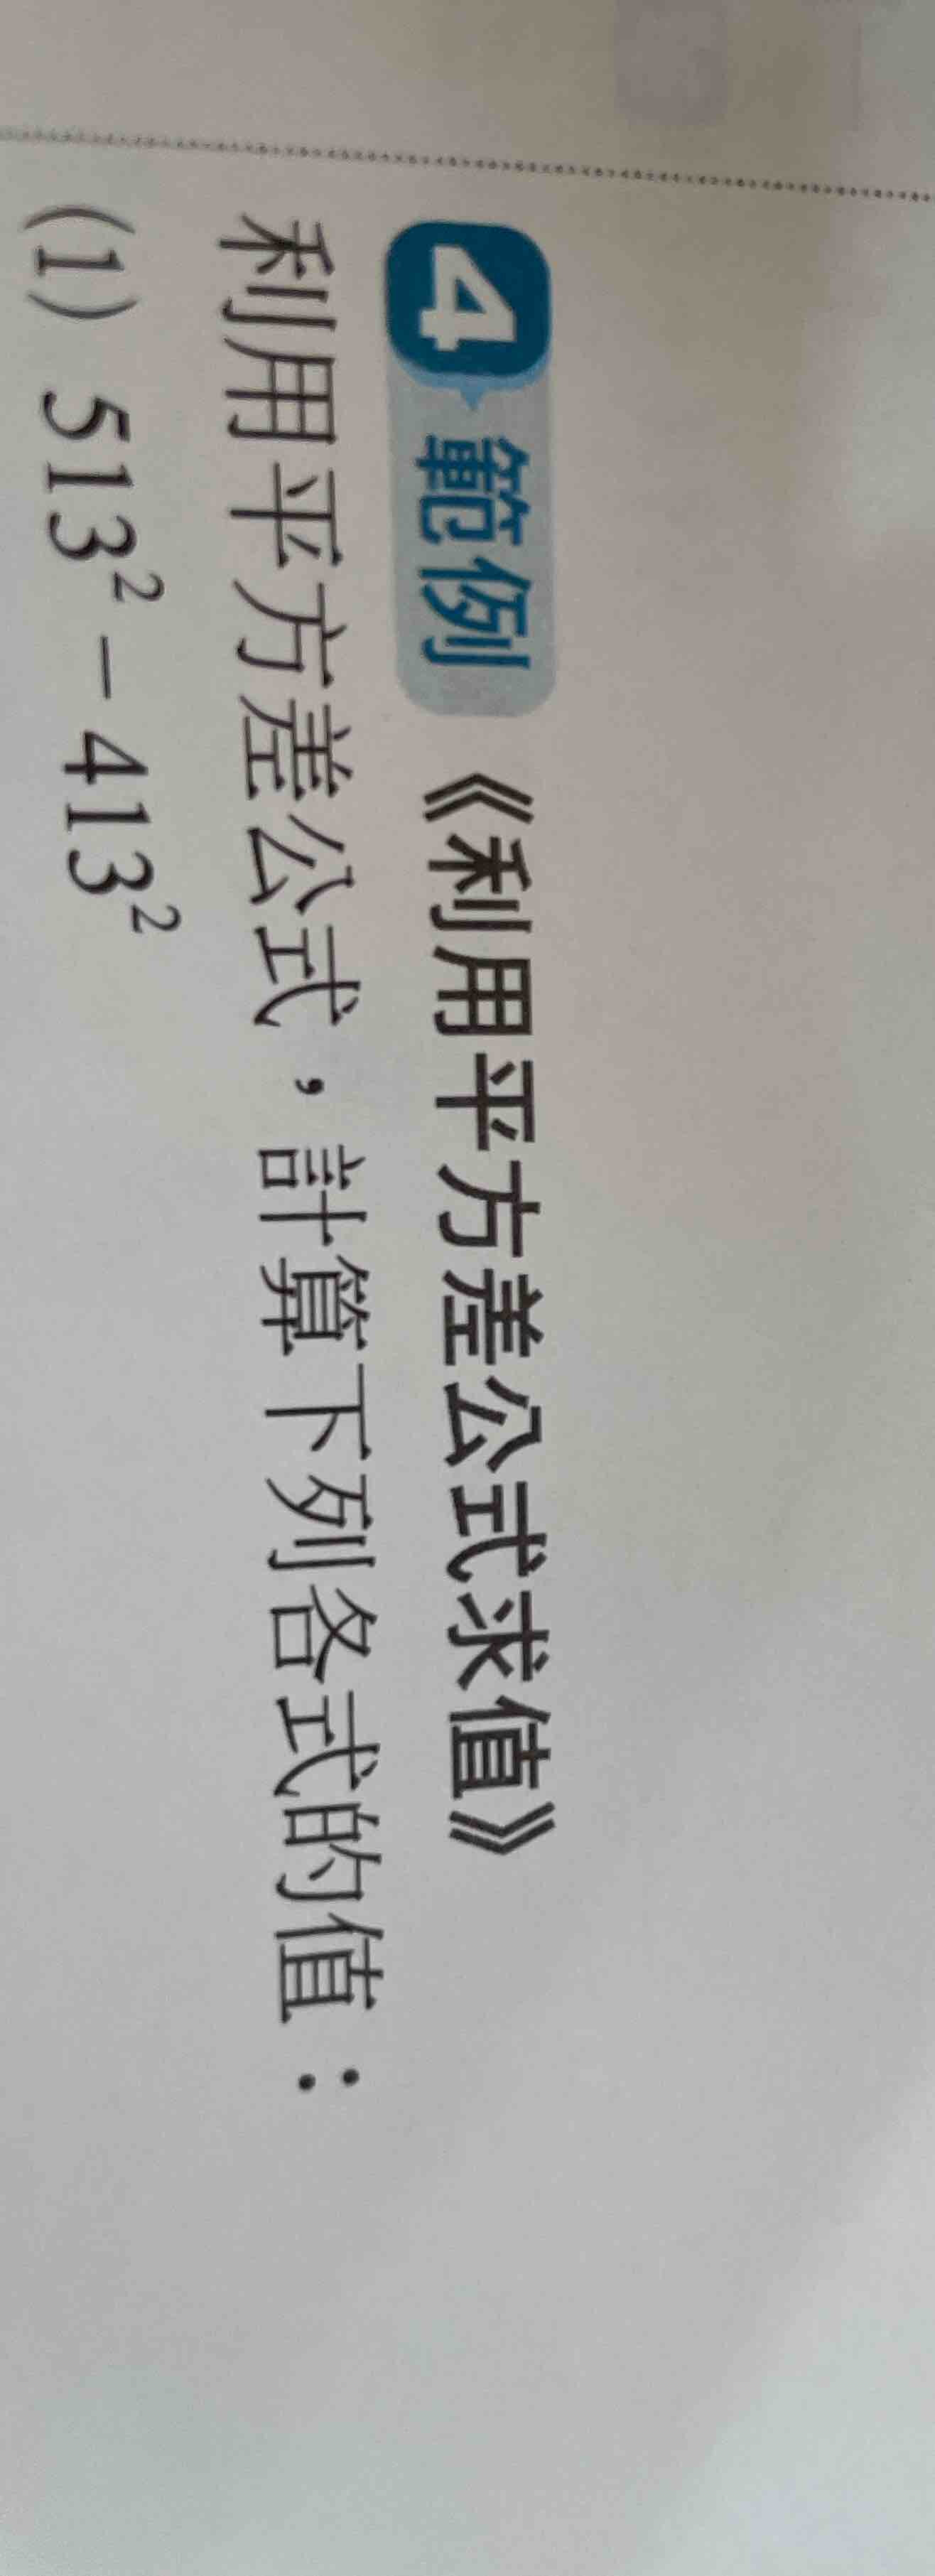 4 範例 《利用平方差公式求值》
利用平方差公式，計算下列各式的值：
(1) 513² − 413²